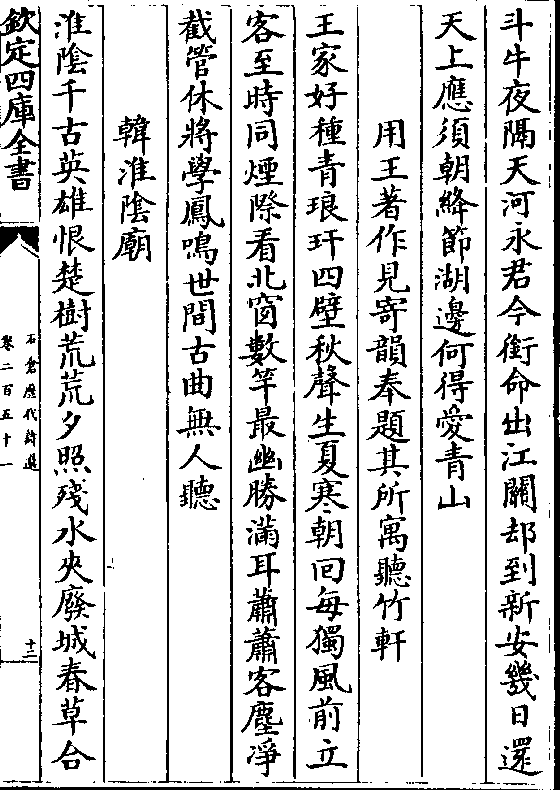 斗牛夜隔天河永君今銜命出江關却到新安幾日還
天上應須朝絳節湖邊何得愛青山
用王著作見寄韻奉題其所寓聽竹軒
王家好種青琅玕四壁秋聲生夏寒朝回每獨風前立
客至時同煙際看北窗數竿最幽勝滿耳蕭蕭客塵淨
截管休將學鳳鳴世間古曲無人聽
韓淮陰廟
淮陰千古英雄恨楚樹荒荒夕照殘水夾廢城春草合
欽定四庫全書
石倉歷代詩選
卷二百五十一
十二